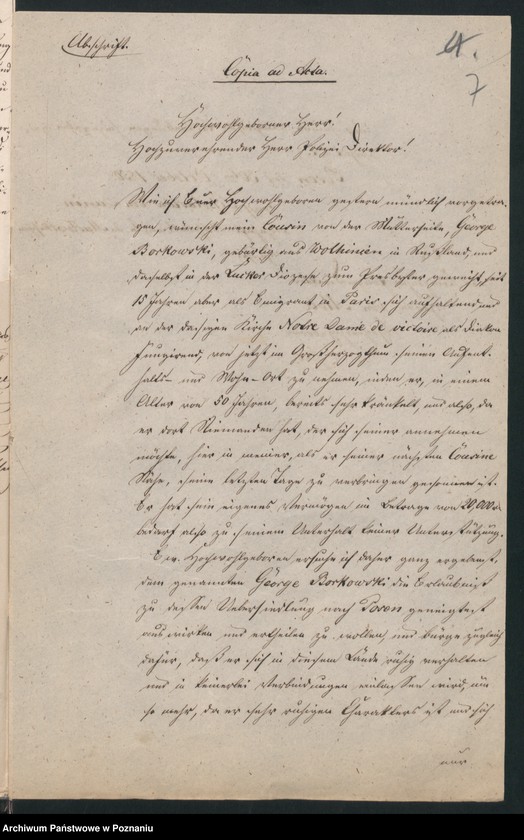 Abschrift.
4.
7
Copia ad Acta.
Hochwohlgeborner Herr!
Hochzuverehrender Herr Polizei Direktor!
Wie ich Euer Hochwohlgeboren gestern mündlich vorgetra-
gen, wünscht mein Cousin von der Mutterseite, George
Borkowski, gebürtig aus Volhinien in Rußland, und
daselbst in der Luckor Diözese zum Presbyter geweiht, seit
15 Jahren aber als Emigrant in Paris sich aufhaltend und
an der dasigen Kirche Notre Dame de victoire als Diakon
fungirend, von jetzt im Großherzogthum seinen Aufent-
halts- und Wohn-Ort zu nehmen, indem er, in einem
Alter von 50 Jahren, bereits sehr kränkelt, und also, da
er dort Niemanden hat, der sich seiner annehmen
möchte, hier in meiner, als er seiner nächsten Cousine
Nähe, seine letzten Tage zu verbringen gesonnen ist.
Er hat sein eigenes Vermögen im Betrage von 20,000
bedarf also zu seinem Unterhalt keiner Unterstützung.
Ew. Hochwohlgeboren ersuche ich daher ganz ergebenst,
dem genannten George Borkowski die Erlaubniß
zu dessen Uebersiedlung nach Posen geneigtest
auswirken und ertheilen zu wollen, und bürge zugleich
dafür, daß er sich in diesem Lande ruhig verhalten
und in keinerlei Verbindungen einlassen wird, um
so mehr, da er sehr ruhigen Charakters ist und sich
nur
Archiwum Państwowe w Poznaniu
www.szukajwarchiwach.gov.pl